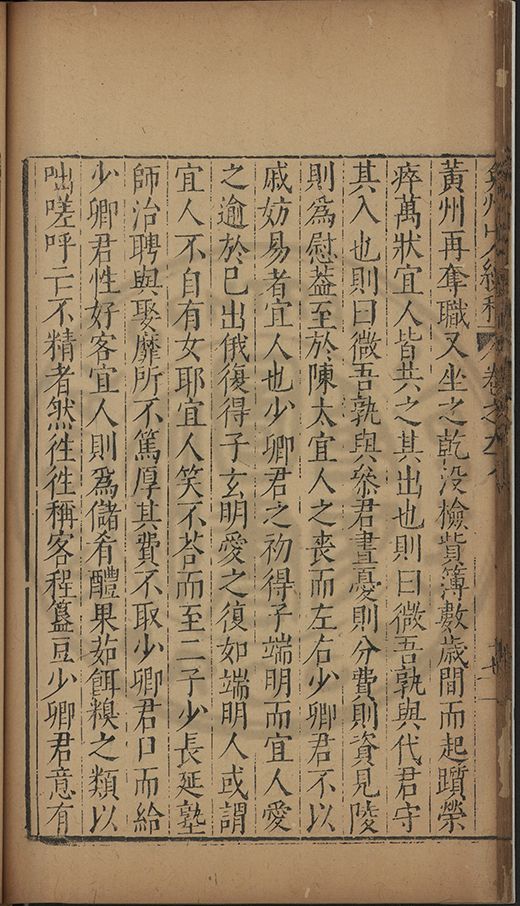 弇州山人續稿 卷之
黃州再奪職又坐之乾没檢貲簿數歲間而起躓榮
瘁萬狀宜人皆共之其出也則曰微吾孰與代君守
其入也則曰微吾孰與叅君晝憂則分費則資見陵
則爲慰葢至於陳太宜人之喪而左右少卿君不以
戚妨易者宜人也少卿君之初得子端明而宜人愛
之逾於已出俄復得子玄明愛之復如端明人或謂
宜人不自有女耶宜人笑不荅而至二子少長延塾
師治聘與娶靡所不篤厚其費不取少卿君口而給
少卿君性好客宜人則爲儲肴醴果茹餌糗之類以
咄嗟呼亡不精者然徃徃稱客程簋豆少卿君意有